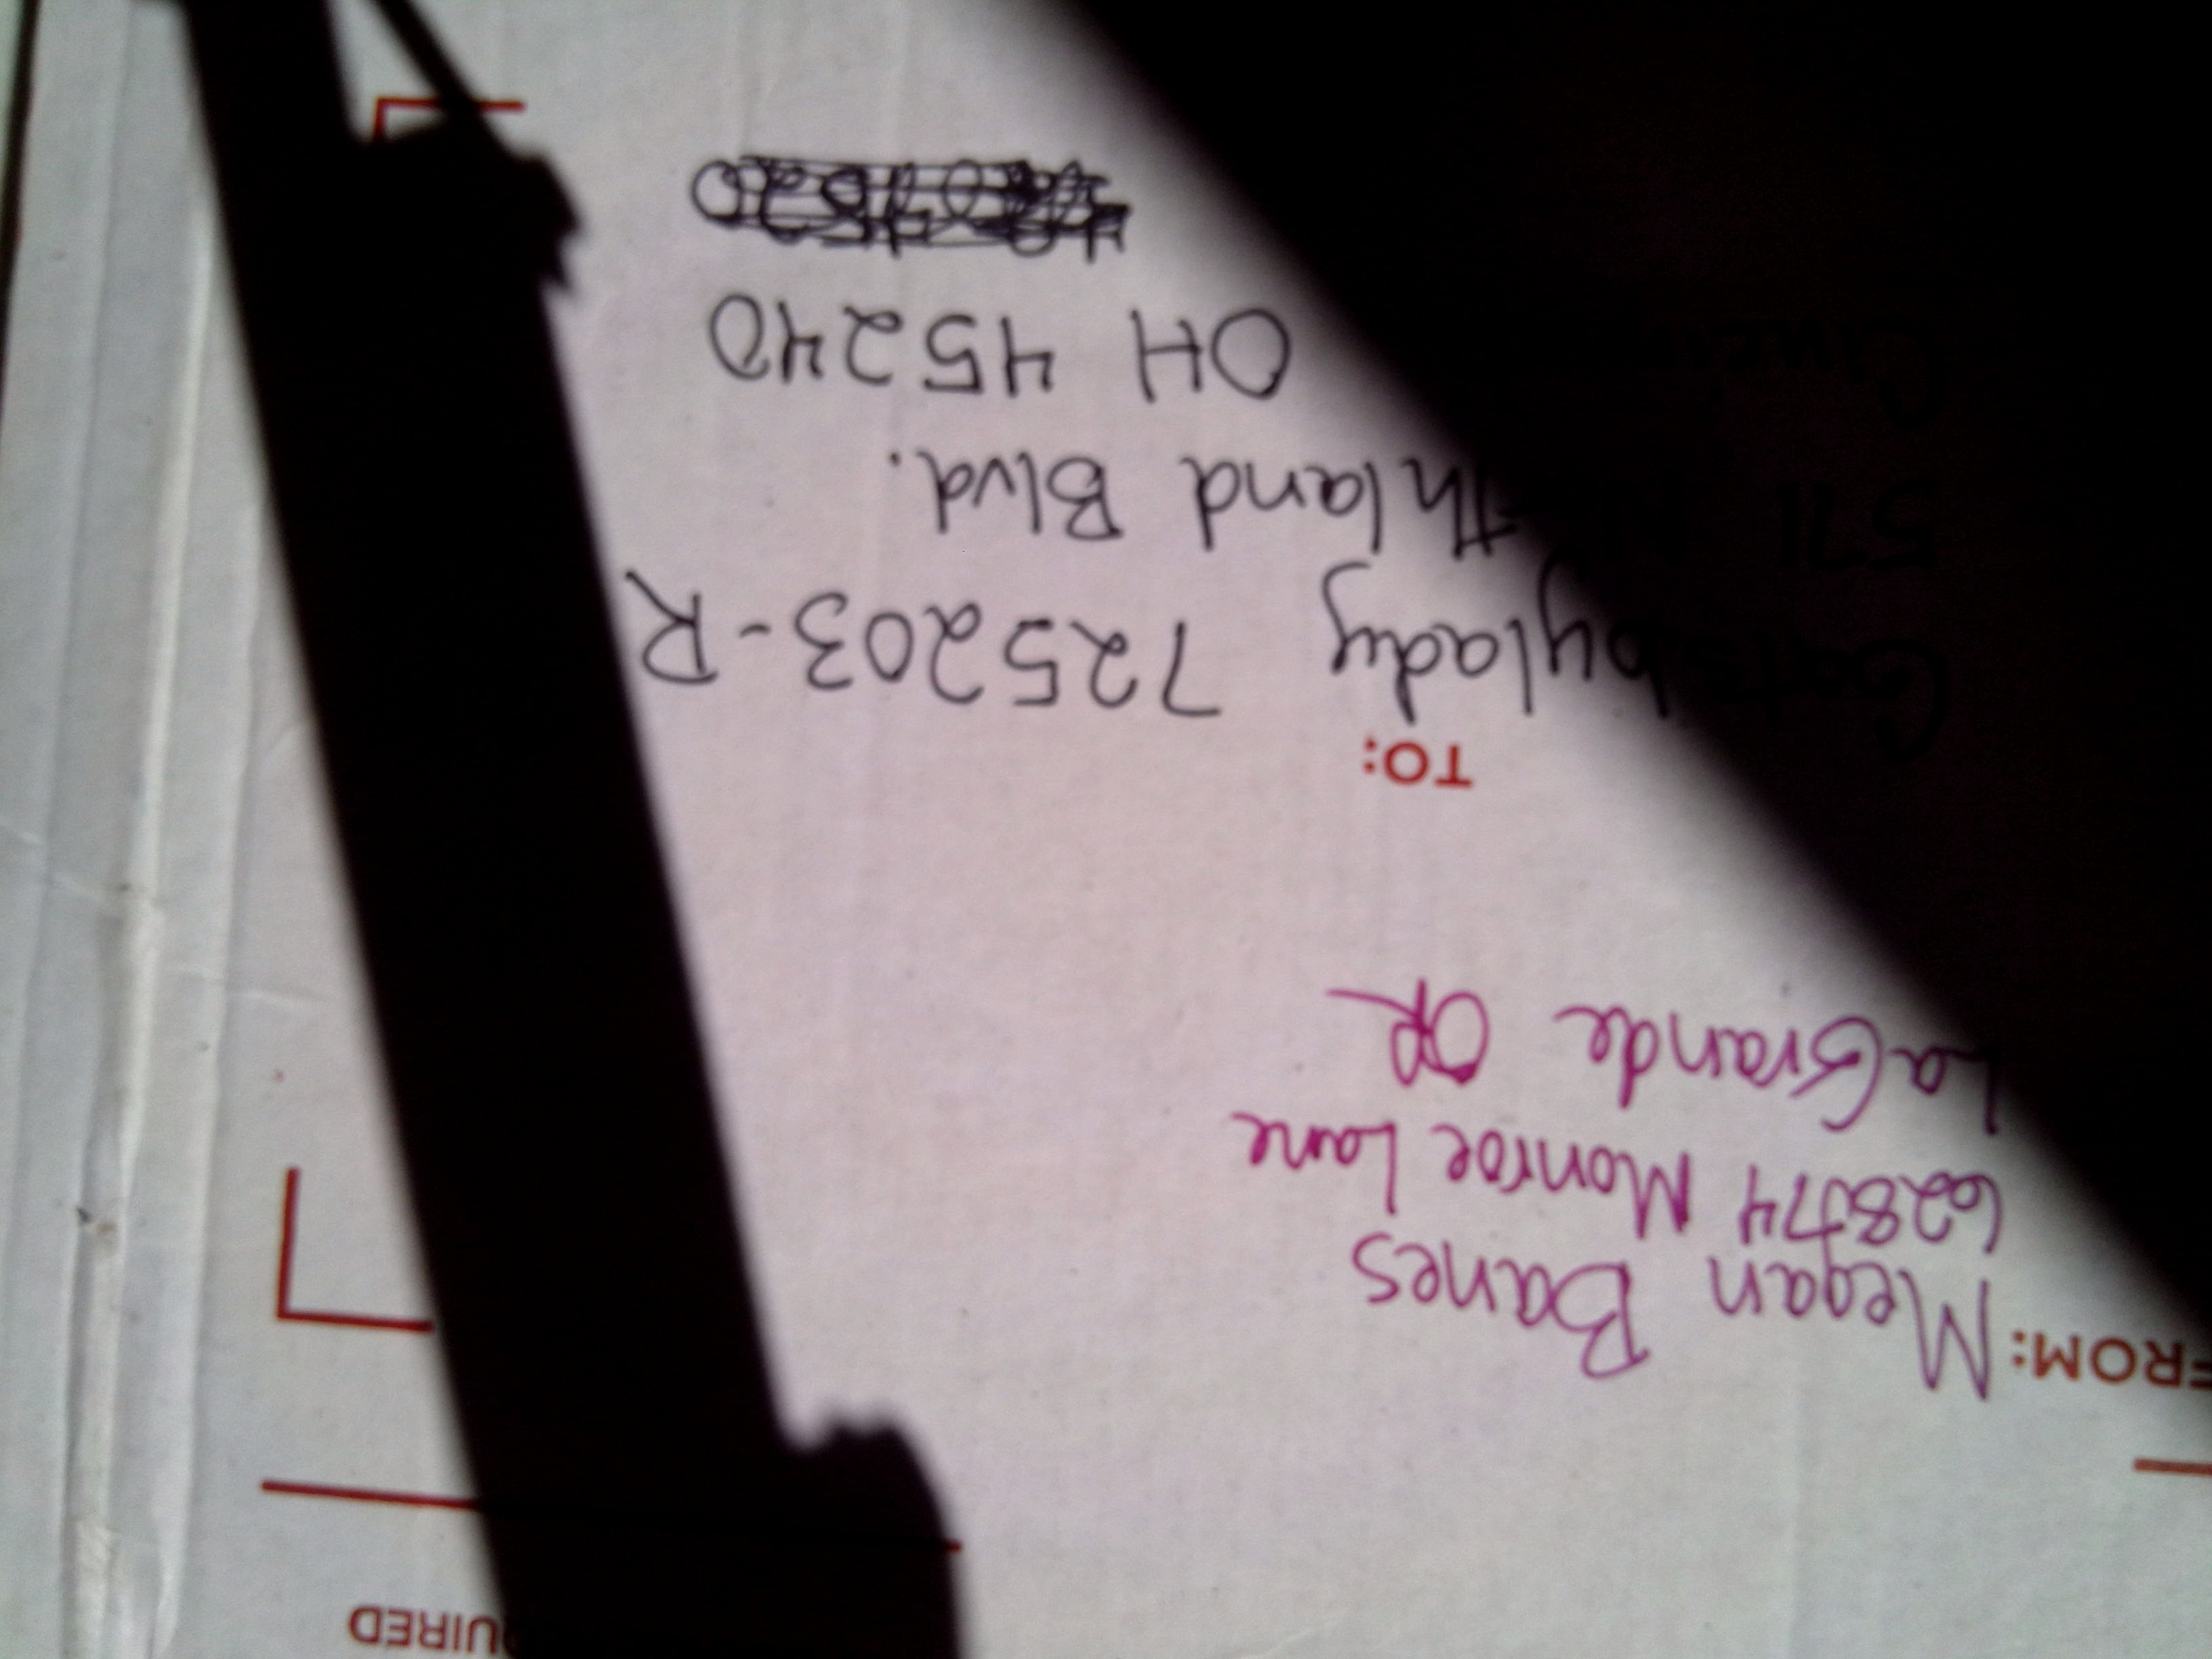 FROM: Megan Banes
62874 Monroe Lane
La Grande OR
TO:
Gatsbylady 725203-R
571 thland Blvd.
OH 45240
UIRED